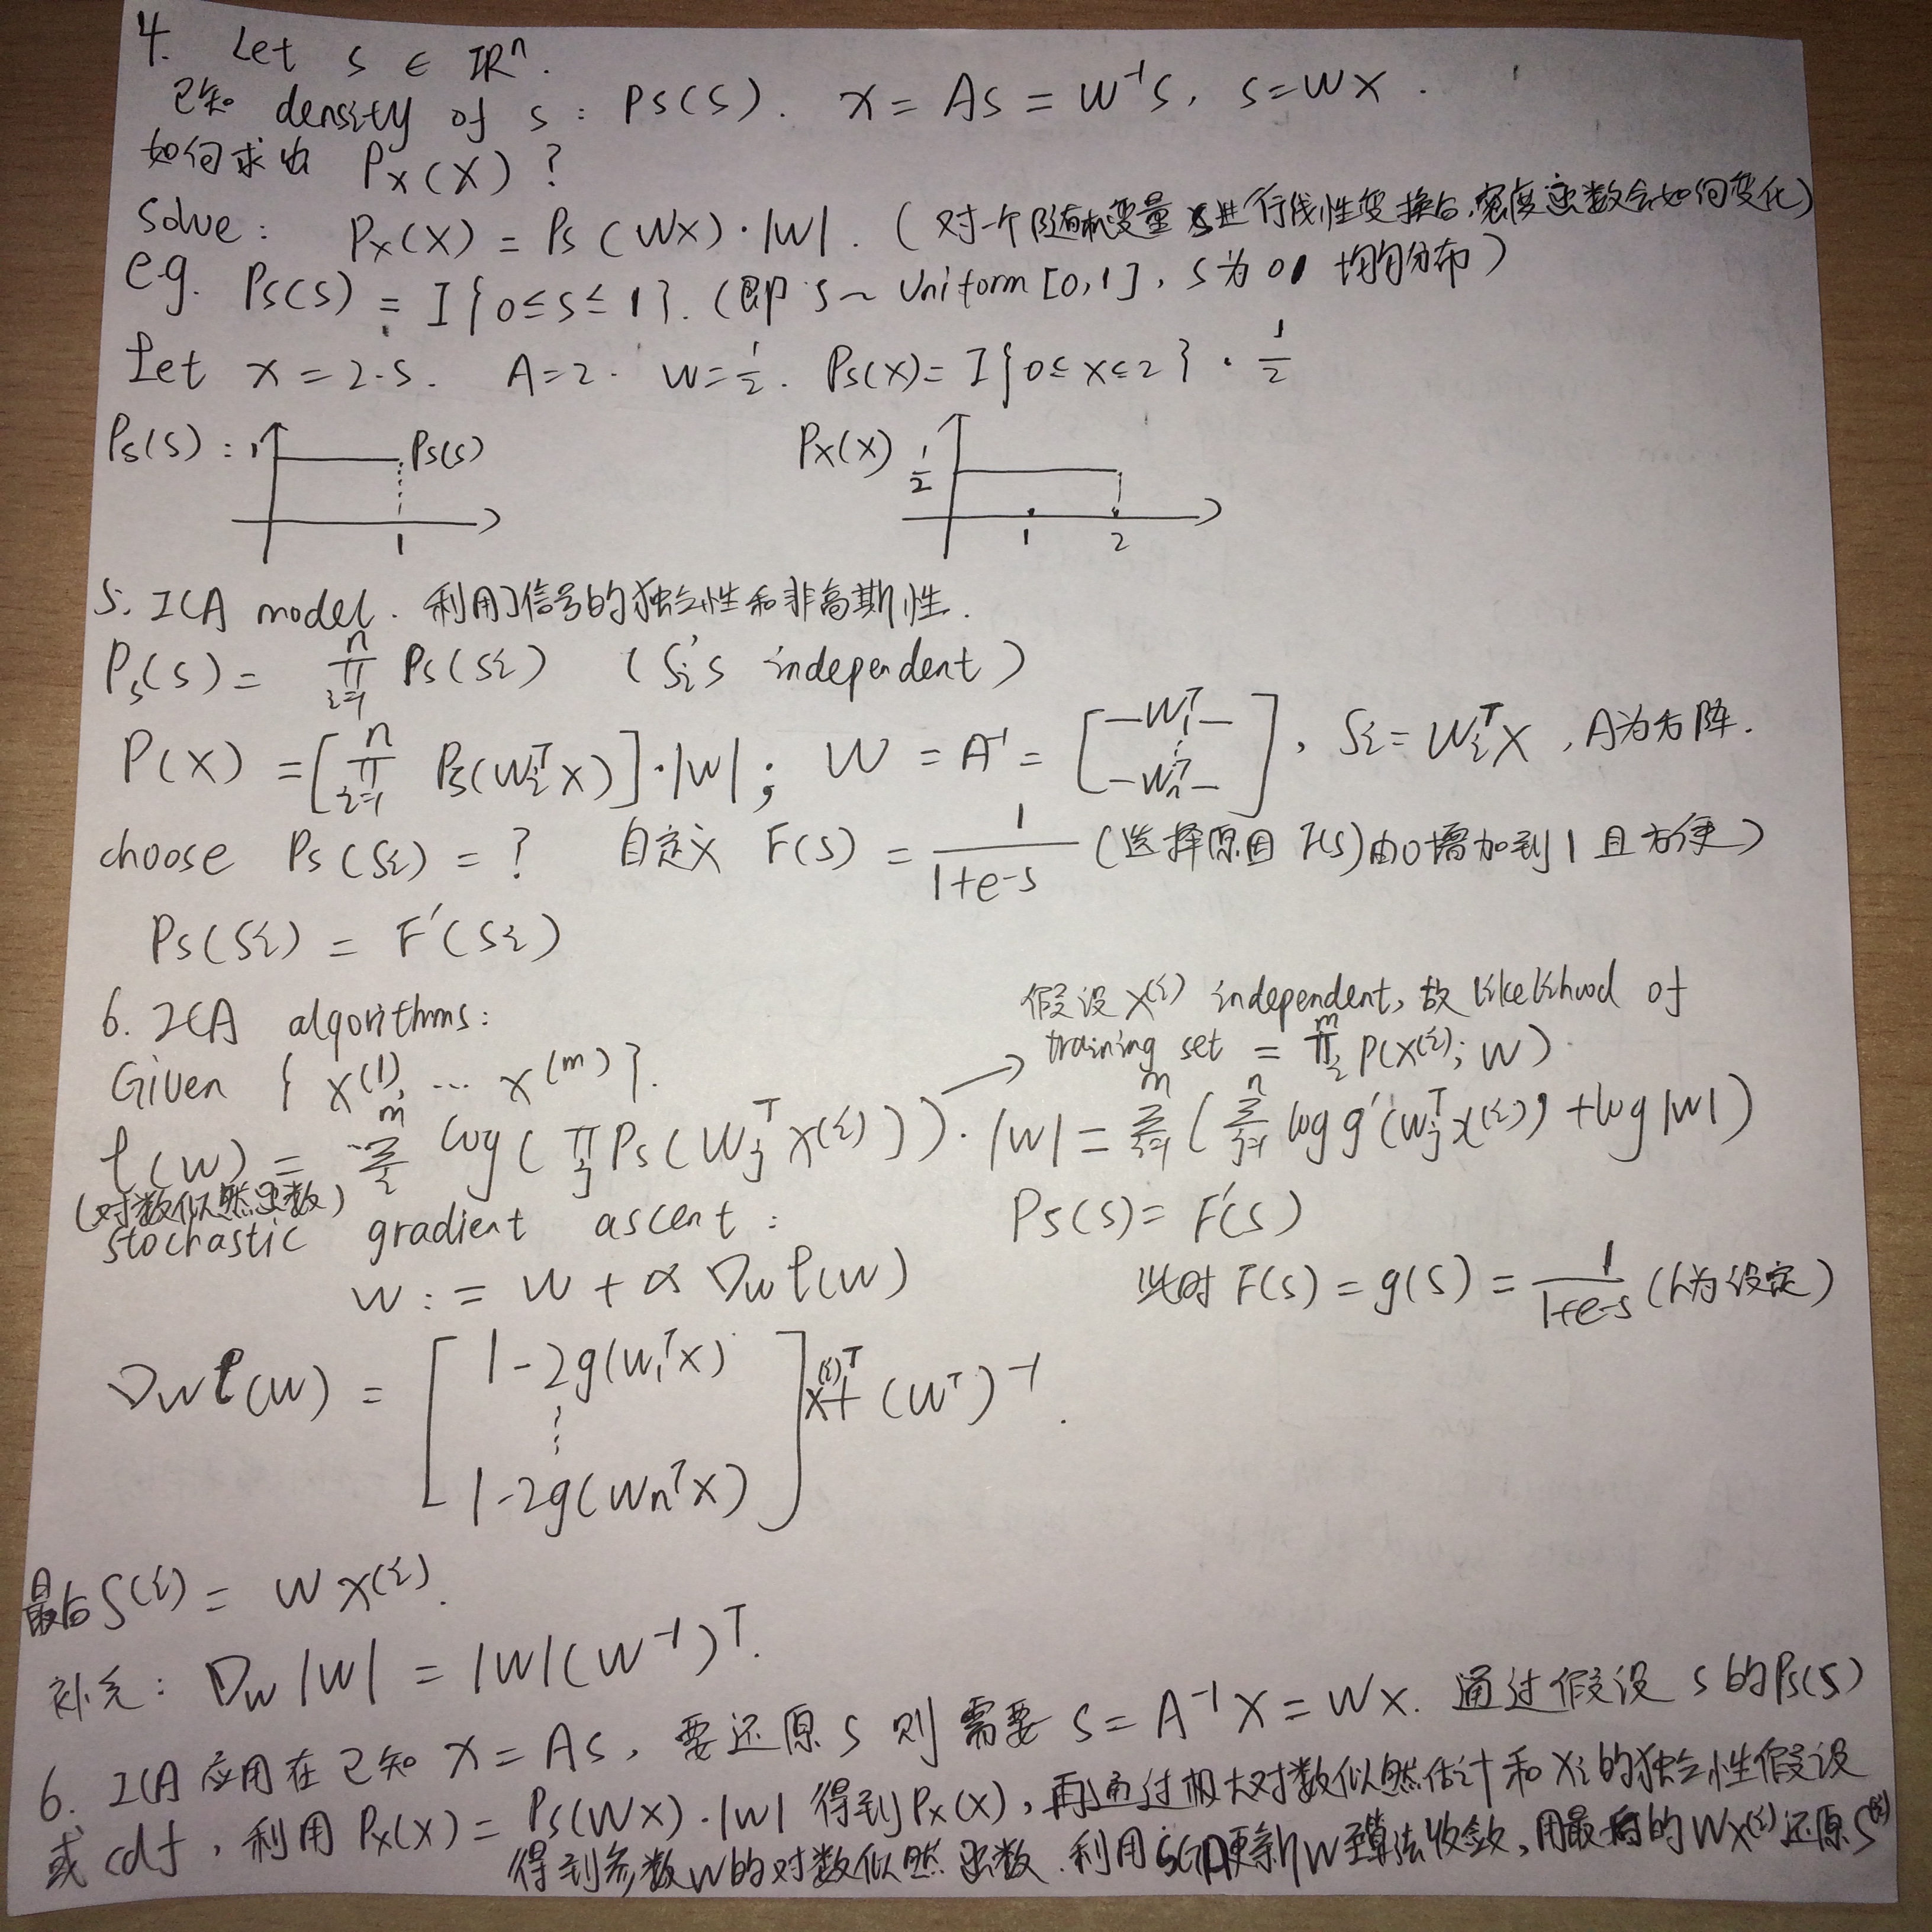 4. Let s ∈ IRⁿ.
已知 density of s : Ps(s). x = As = W⁻¹s, s=Wx.
如何求出 Px(x) ?
Solve: Px(x) = Ps(Wx)·|W|. (对一个随机变量s进行线性变换后,密度函数会如何变化)
e.g. Ps(s) = I{0≤s≤1}. (即 s~Uniform[0,1], s为01均匀分布)
Let x=2·s. A=2. W=½. Ps(x)= I{0≤x≤2}·½
Ps(s): 1 Ps(s) Px(x) ½
1 1 2
5. ICA model. 利用了信号的独立性和非高斯性.
Ps(s)= ∏ⁿᵢ₌₁ Ps(si) (si's independent)
P(x) =[∏ⁿᵢ₌₁ Ps(WiᵀX)]·|W|; W = A⁻¹ = [—W₁ᵀ— ⋮ —Wnᵀ—], Si=WiᵀX, A为方阵.
choose Ps(Si) = ? 自定义 F(s) = 1/(1+e-s) (选择原因 F(s)由0增加到1且方便)
Ps(Si) = F′(Si)
6. ICA algorithms:
假设x⁽ⁱ⁾ independent, 故 likelihood of
training set = ∏ᵐᵢ P(x⁽ⁱ⁾; W)
Given { x⁽¹⁾, … x⁽ᵐ⁾}.
ℓ(W) = ∑ᵐᵢ log(∏ⱼ Ps(Wjᵀx⁽ⁱ⁾))·|W| = ∑ᵐᵢ₌₁(∑ⁿⱼ₌₁ log g′(wjᵀx⁽ⁱ⁾) + log|W|)
(对数似然函数) Ps(s)=F′(s)
stochastic gradient ascent :
W := W + α∇wℓ(W) 此时 F(s) = g(s) = 1/(1+e-s) (人为设定)
∇wℓ(W) = [1-2g(W₁ᵀX) ⋮ 1-2g(WnᵀX)] x⁽ⁱ⁾ᵀ + (Wᵀ)⁻¹.
最后S⁽ⁱ⁾ = WX⁽ⁱ⁾.
补充: ∇w|W| = |W|(W⁻¹)ᵀ.
6. ICA应用在已知 x=As, 要还原s则需要 s=A⁻¹X=WX. 通过假设 s的Ps(s)
或cdf, 利用 Px(x)=Ps(Wx)·|W| 得到Px(x), 再通过极大对数似然估计和Xi的独立性假设
得到参数W的对数似然函数. 利用SGD更新W至算法收敛, 用最后的Wx⁽ⁱ⁾还原S⁽ⁱ⁾